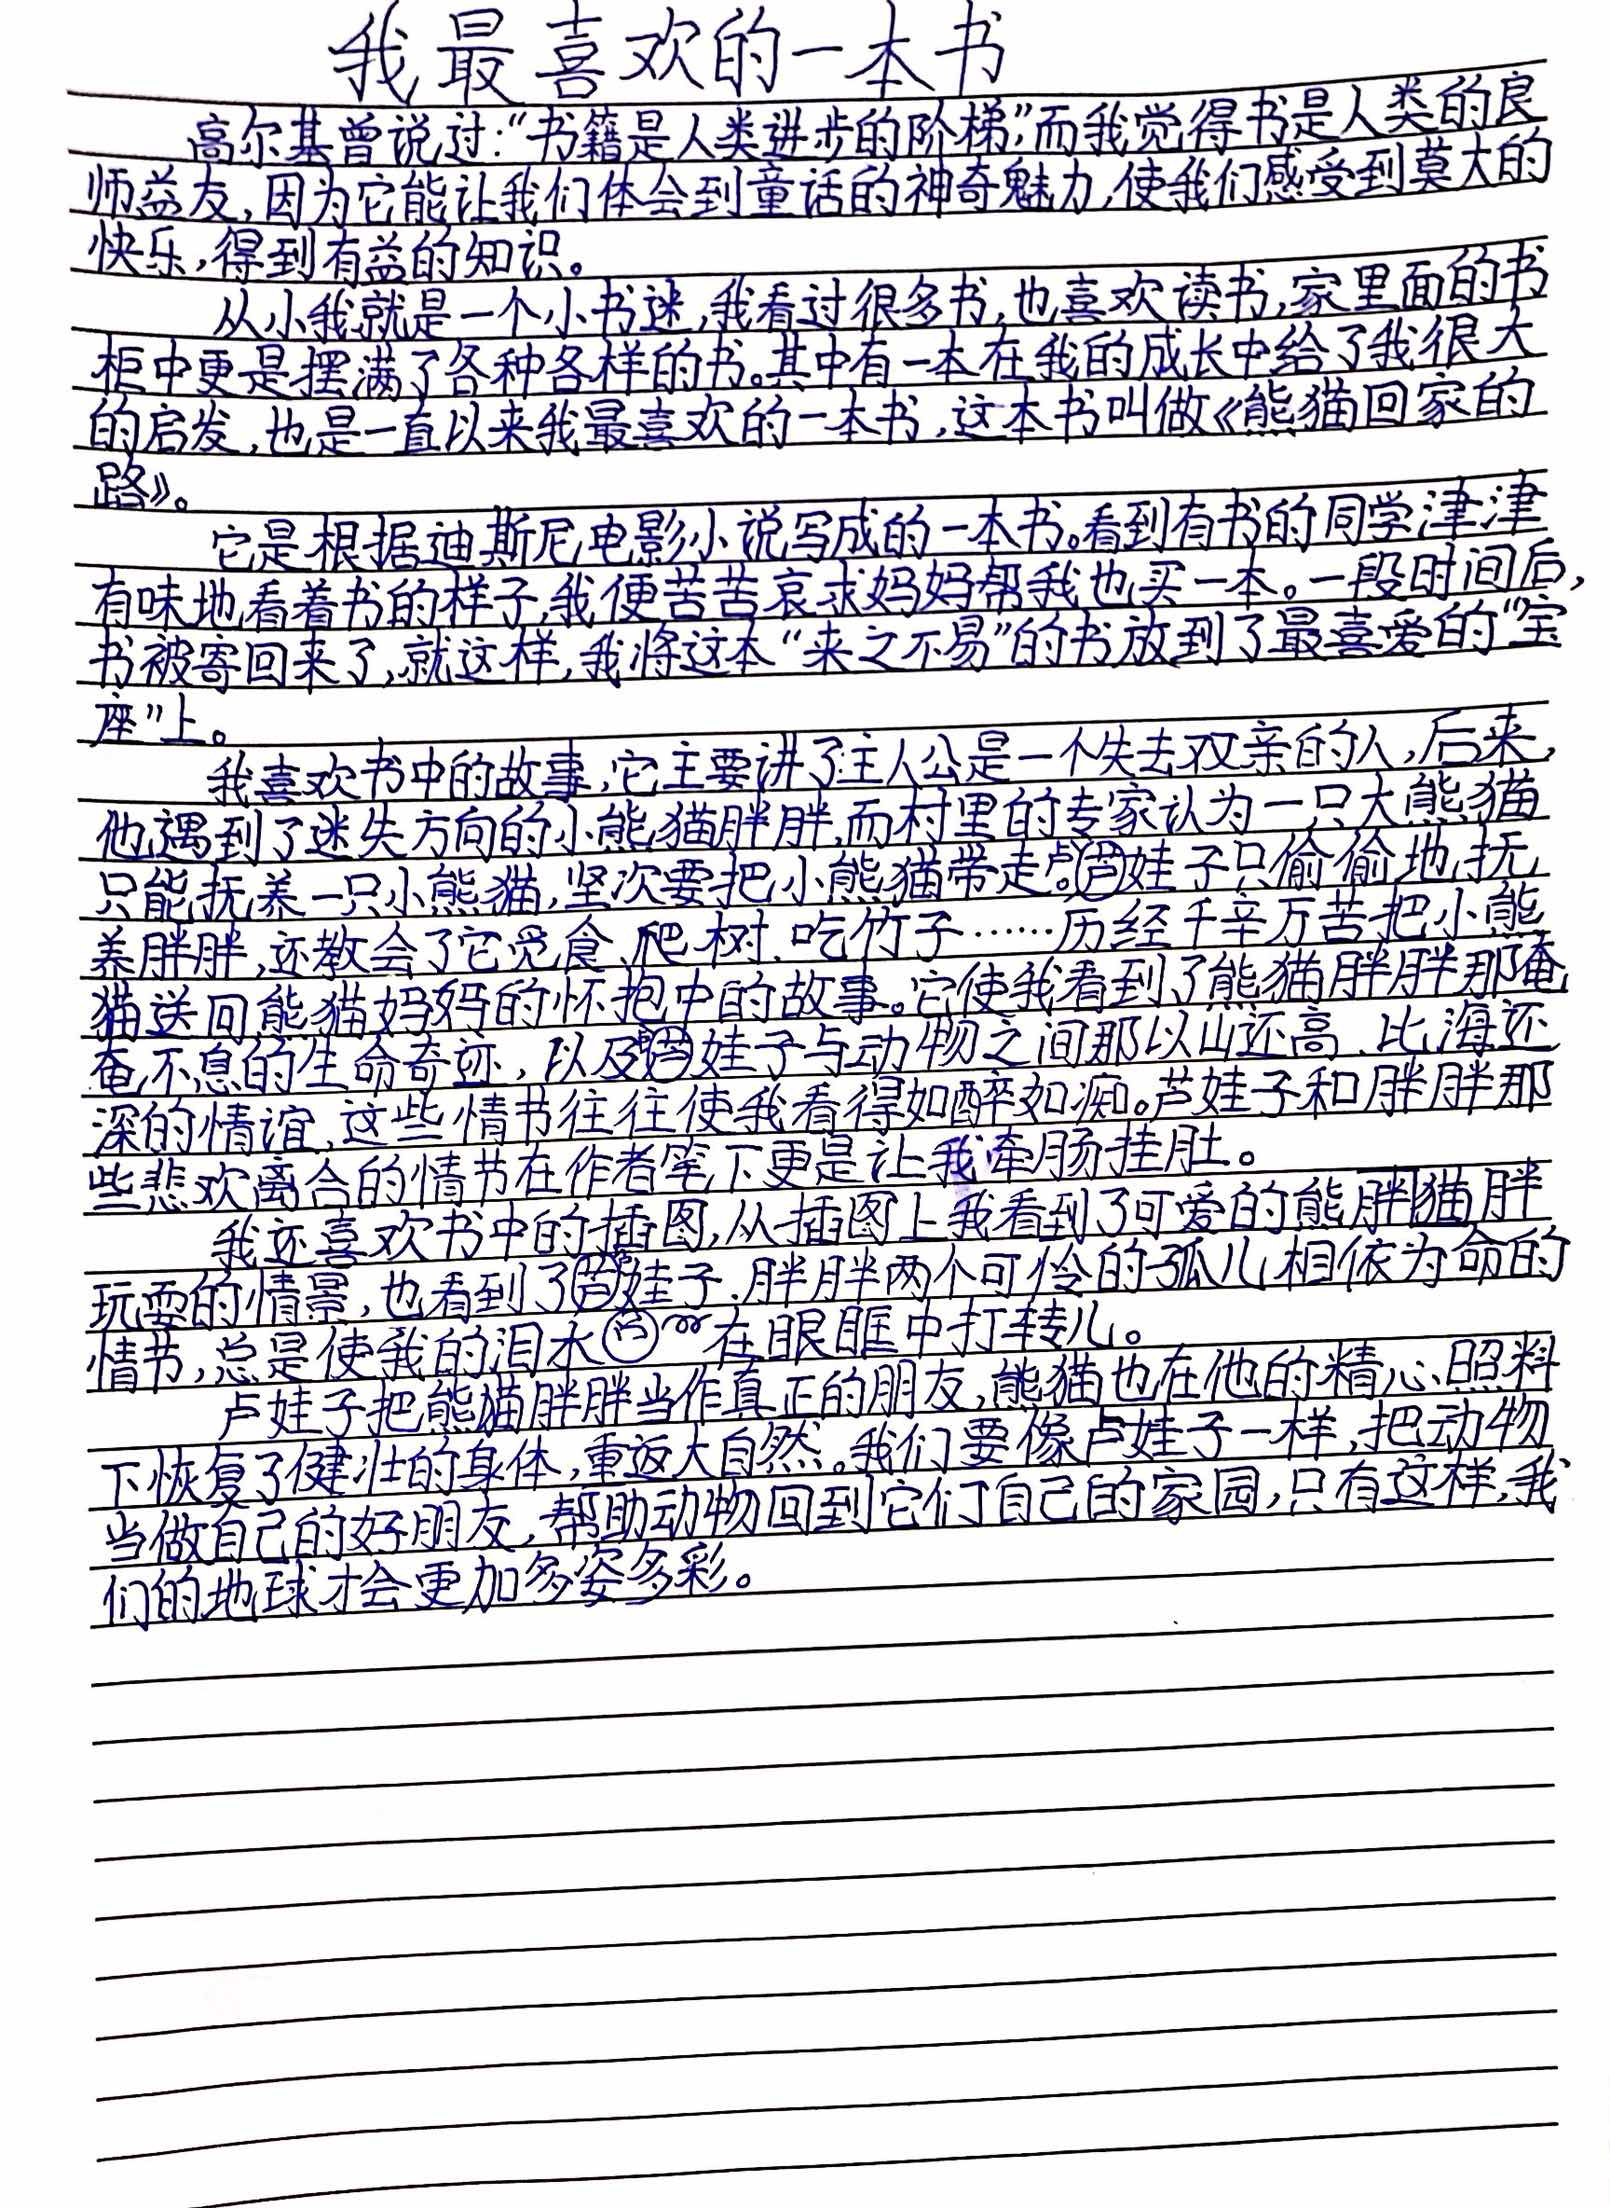 我最喜欢的一本书
高尔基曾说过:“书籍是人类进步的阶梯”,而我觉得书是人类的良
师益友,因为它能让我们体会到童话的神奇魅力,使我们感受到莫大的
快乐,得到有益的知识。
从小我就是一个小书迷,我看过很多书,也喜欢读书,家里面的书
柜中更是摆满了各种各样的书。其中有一本在我的成长中给了我很大
的启发,也是一直以来我最喜欢的一本书,这本书叫做《熊猫回家的
路》。
它是根据迪斯尼电影小说写成的一本书。看到有书的同学津津
有味地看着书的样子,我便苦苦哀求妈妈帮我也买一本。一段时间后,
书被寄回来了,就这样,我将这本“来之不易”的书放到了最喜爱的“宝
座”上。
我喜欢书中的故事,它主要讲了主人公是一个失去双亲的人,后来,
他遇到了迷失方向的小熊猫胖胖,而村里的专家认为一只大熊猫
只能抚养一只小熊猫,坚次要把小熊猫带走。卢娃子只偷偷地抚
养胖胖,还教会了它觅食、爬树、吃竹子……历经千辛万苦把小熊
猫送回熊猫妈妈的怀抱中的故事。它使我看到了熊猫胖胖那奄
奄不息的生命奇迹,以及卢娃子与动物之间那以山还高、比海还
深的情谊,这些情节往往使我看得如醉如痴。芦娃子和胖胖那
些悲欢离合的情节在作者笔下更是让我牵肠挂肚。
我还喜欢书中的插图,从插图上我看到了可爱的熊胖猫胖
玩耍的情景,也看到了卢娃子、胖胖两个可怜的孤儿相依为命的
情节,总是使我的泪水在眼眶中打转儿。
卢娃子把熊猫胖胖当作真正的朋友,熊猫也在他的精心照料
下恢复了健壮的身体,重返大自然。我们要像卢娃子一样,把动物
当做自己的好朋友,帮助动物回到它们自己的家园,只有这样,我
们的地球才会更加多姿多彩。